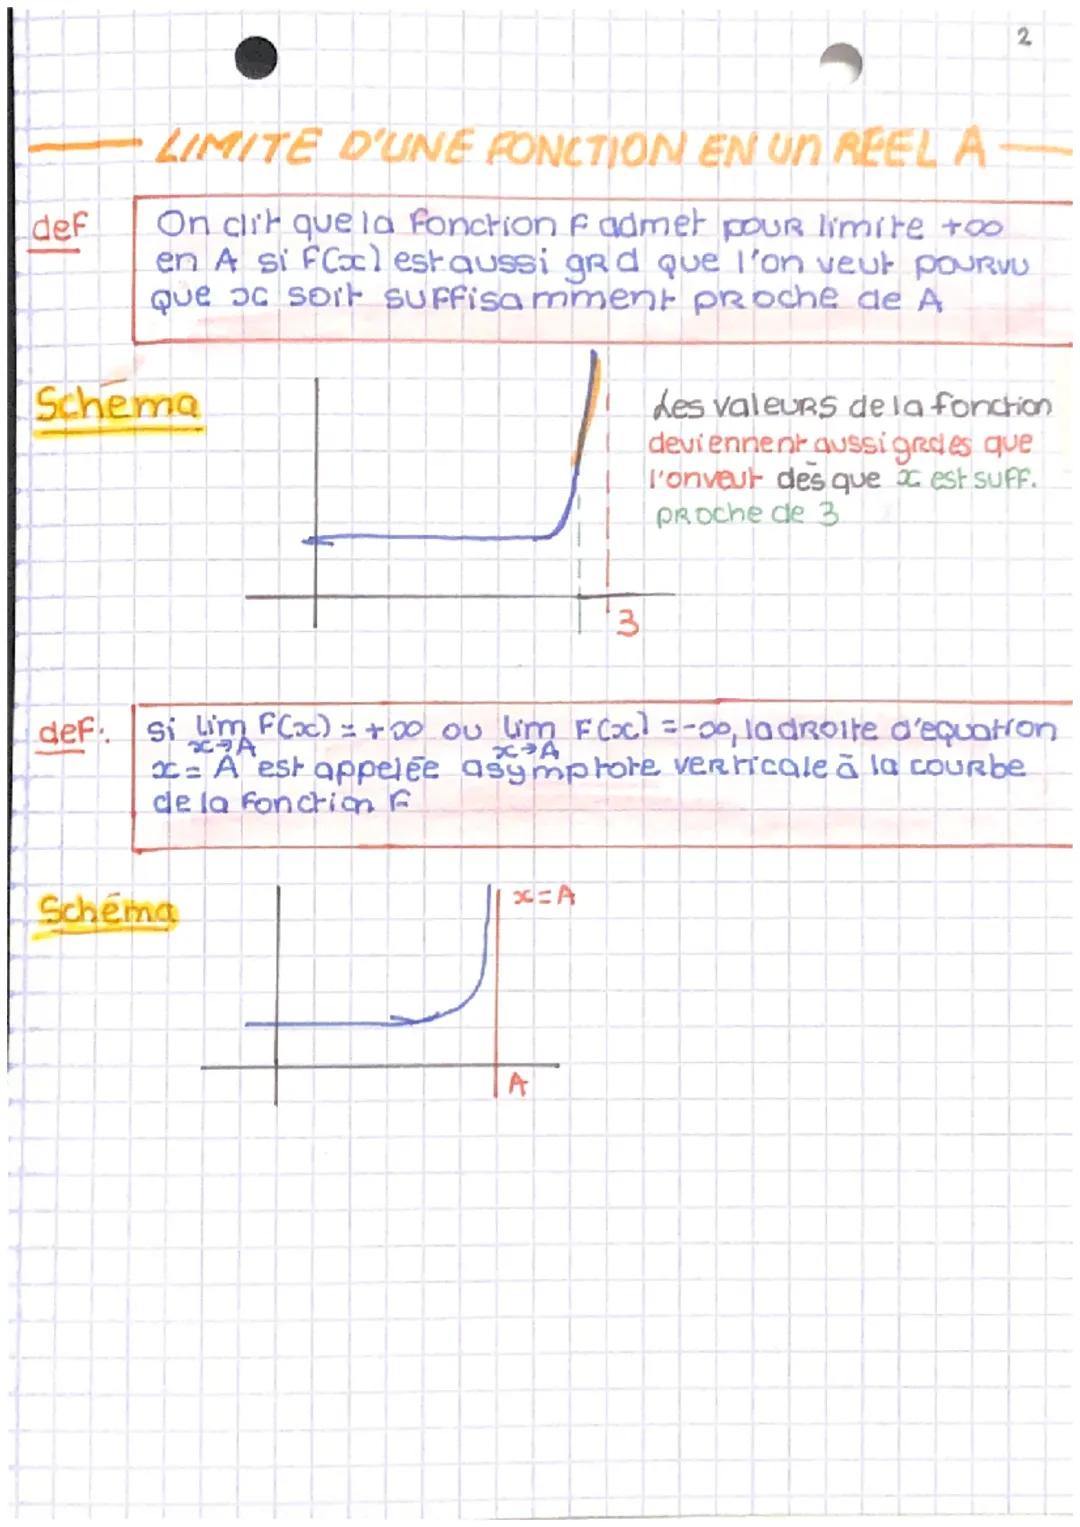 2
LIMITE D'UNE FONCTION EN Un REEL A
def
On dit que la fonction F admet pour limite +∞
en A si F(x) est aussi grd que l'on veut pourvu
que x soit suffisamment proche de A
Schéma
Les valeurs de la fonction
deviennent aussi grdes que
l'on veut dès que x est suff.
proche de 3
3
def:
si lim F(x) = +∞ ou lim F(x) = -∞, la droite d'equation
x→A x→A
x = A est appelée asymptote verticale à la courbe
de la fonction F
Schéma
x = A
A